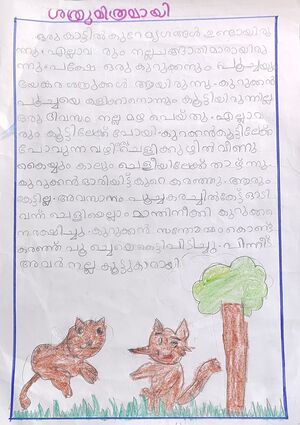 ശത്രുമിത്രമായി
ഒരു കാട്ടിൽ കുറേ മൃഗങ്ങൾ ഉണ്ടായിരു
ന്നു. എല്ലാവ രും നല്ലചങ്ങാതിമാരായിരു
ന്നു. പക്ഷേ ഒരു കുറുക്കനും പൂച്ചയും
ഭയങ്കരശത്രുക്കൾ ആയിരുന്നു. കുറുക്കൻ
പൂച്ചയെ കളിക്കാനൊന്നും കൂട്ടിയിരുന്നില്ല
ഒരു ദിവസം നല്ല മഴ പെയ്തു. എല്ലാവ
രും കൂട്ടിലേക്ക് പോയി. കുറുക്കൻകൂട്ടിലേക്ക്
പോവുന്ന വഴിക്ക് ചെളിക്കുഴിൽ വീണു
കൈയ്യും കാലും ചെളിയിലേക്ക് താഴ് ന്നു.
കുറുക്കൻ പേടിച്ച് കുറെ കരഞ്ഞു. ആരും
കേട്ടില്ല. അവസാനം പൂച്ച കരച്ചിൽകേട്ട് ഓടി
വന്ന് ചെളിയെല്ലാം മാന്തിനീക്കി കുറുക്കനെ
രക്ഷിച്ചു. കുറുക്കൻ സന്തോഷം കൊണ്ട്
കരഞ്ഞ് പൂ ച്ചയെ കെട്ടിപിടിച്ചു. പിന്നീട്
അവർ നല്ല കൂട്ടുകാരായി.